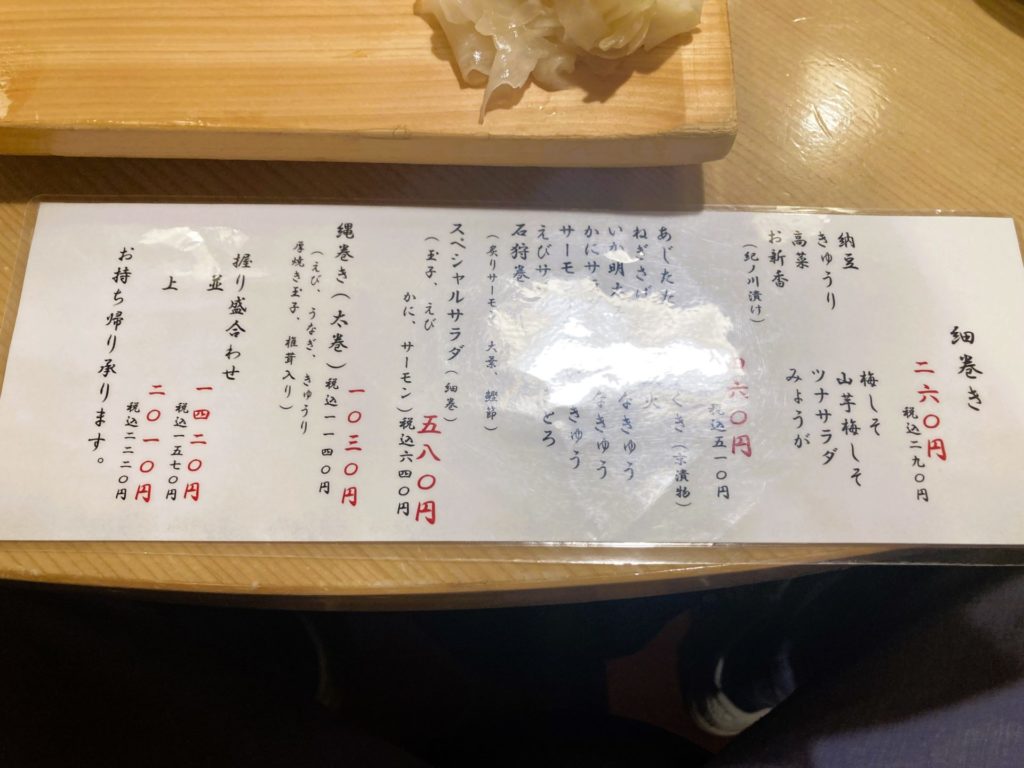 細巻き
二六〇円
税込二九〇円
納豆
きゅうり
高菜
お新香
(紀ノ川漬け)
梅しそ
山芋梅しそ
ツナサラダ
みょうが
六〇円
税込五一〇円
あじたた
ねぎさば
いか明太
かにサ
サーモ
えびサ
石狩巻
(炙りサーモン、大葉、鰹節)
くき(京漬物)
火
なきゅう
きゅう
きゅう
とろ
スペシャルサラダ(細巻)
(玉子、えび
かに、サーモン)
五八〇円
税込六四〇円
縄巻き(太巻)
一〇三〇円
税込一一四〇円
(えび、うなぎ、きゅうり
厚焼き玉子、椎茸入り)
握り盛合わせ
並
一四二〇円
税込一五七〇円
上
二〇一〇円
税込二二二〇円
お持ち帰り承ります。